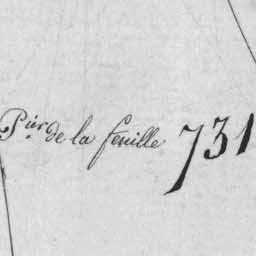 Pièr de la feuille 731